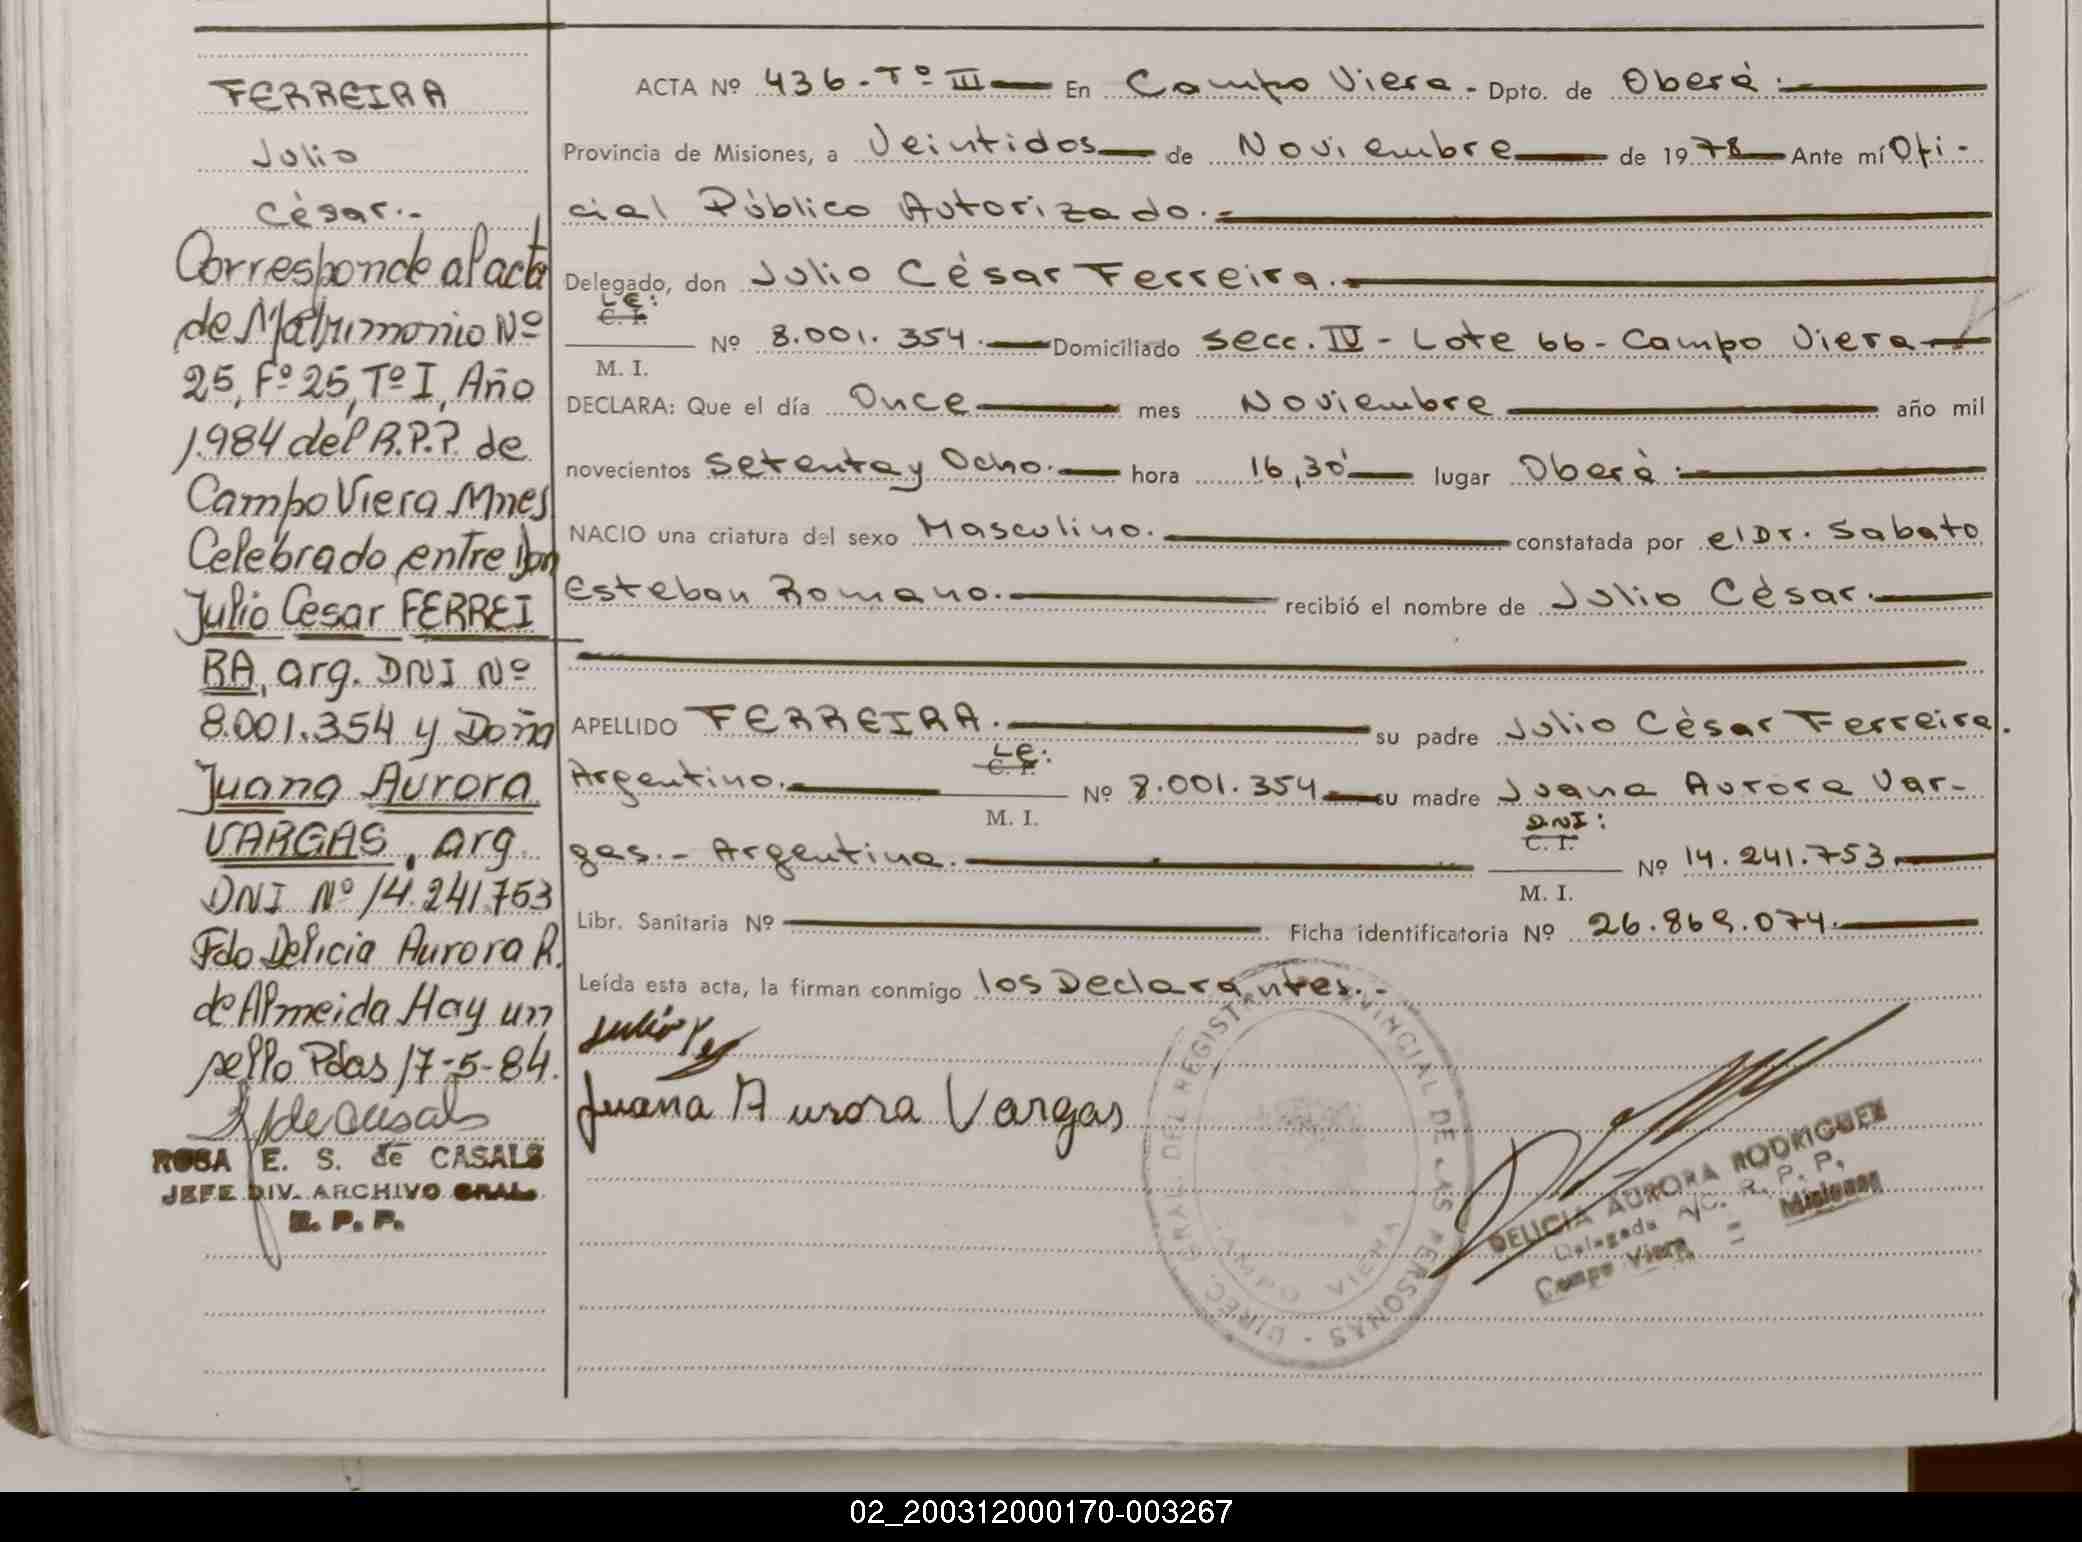 FERREIRA
Julio
César.-
Corresponde al acta
de Matrimonio Nº
25, Fº 25, Tº I, Año
1.984 del R.P.P. de
Campo Viera Mnes
Celebrado entre Don
Julio Cesar FERREI
RA, arg. DNI Nº
8.001.354 y Doña
Juana Aurora
VARGAS, arg.
DNI Nº 14.241.753
Fdo Delicia Aurora R.
de Almeida Hay un
sello Pdas 17-5-84.
ROSA E. S. de CASALS
JEFE DIV. ARCHIVO GRAL.
R. P. P.
ACTA Nº 436-Tº III En Campo Viera- Dpto. de Oberá.
Provincia de Misiones, a Veintidos de Noviembre de 1978 Ante mí Ofi-
cial Público Autorizado.
Delegado, don Julio César Ferreira.
L.E.:
C. I.
Nº 8.001.354. Domiciliado Secc. IV - Lote 66 - Campo Viera
M. I.
DECLARA: Que el día Once mes Noviembre año mil
novecientos Setenta y Ocho. hora 16,30 lugar Oberá.
NACIO una criatura del sexo Masculino. constatada por el Dr. Sabato
Esteban Romano. recibió el nombre de Julio César.
APELLIDO FERREIRA. su padre Julio César Ferreira.
L.E.:
C. I.
Argentino. Nº 8.001.354 su madre Juana Aurora Var-
M. I.
DNI:
C. I.
gas.- Argentina. Nº 14.241.753.
M. I.
Libr. Sanitaria Nº Ficha identificatoria Nº 26.869.074.
Leída esta acta, la firman conmigo los Declarantes.-
Juana Aurora Vargas
DIREC. GRAL. DEL REGISTRO PROVINCIAL DE LAS PERSONAS
CAMPO VIERA
DELICIA AURORA RODRIGUEZ
Delegada A/C. R. P. P.
Campo Viera = Misiones
02_200312000170-003267